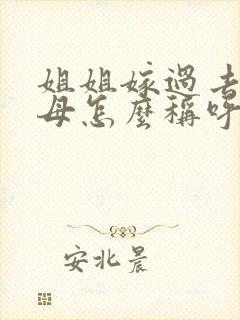 姐姐嫁過去
母怎麼稱呼
安北晨